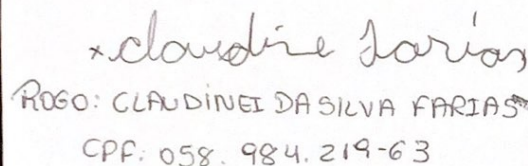 x claudine Farias
ROGO: CLAUDINEI DA SILVA FARIAS
CPF: 058.984.219-63